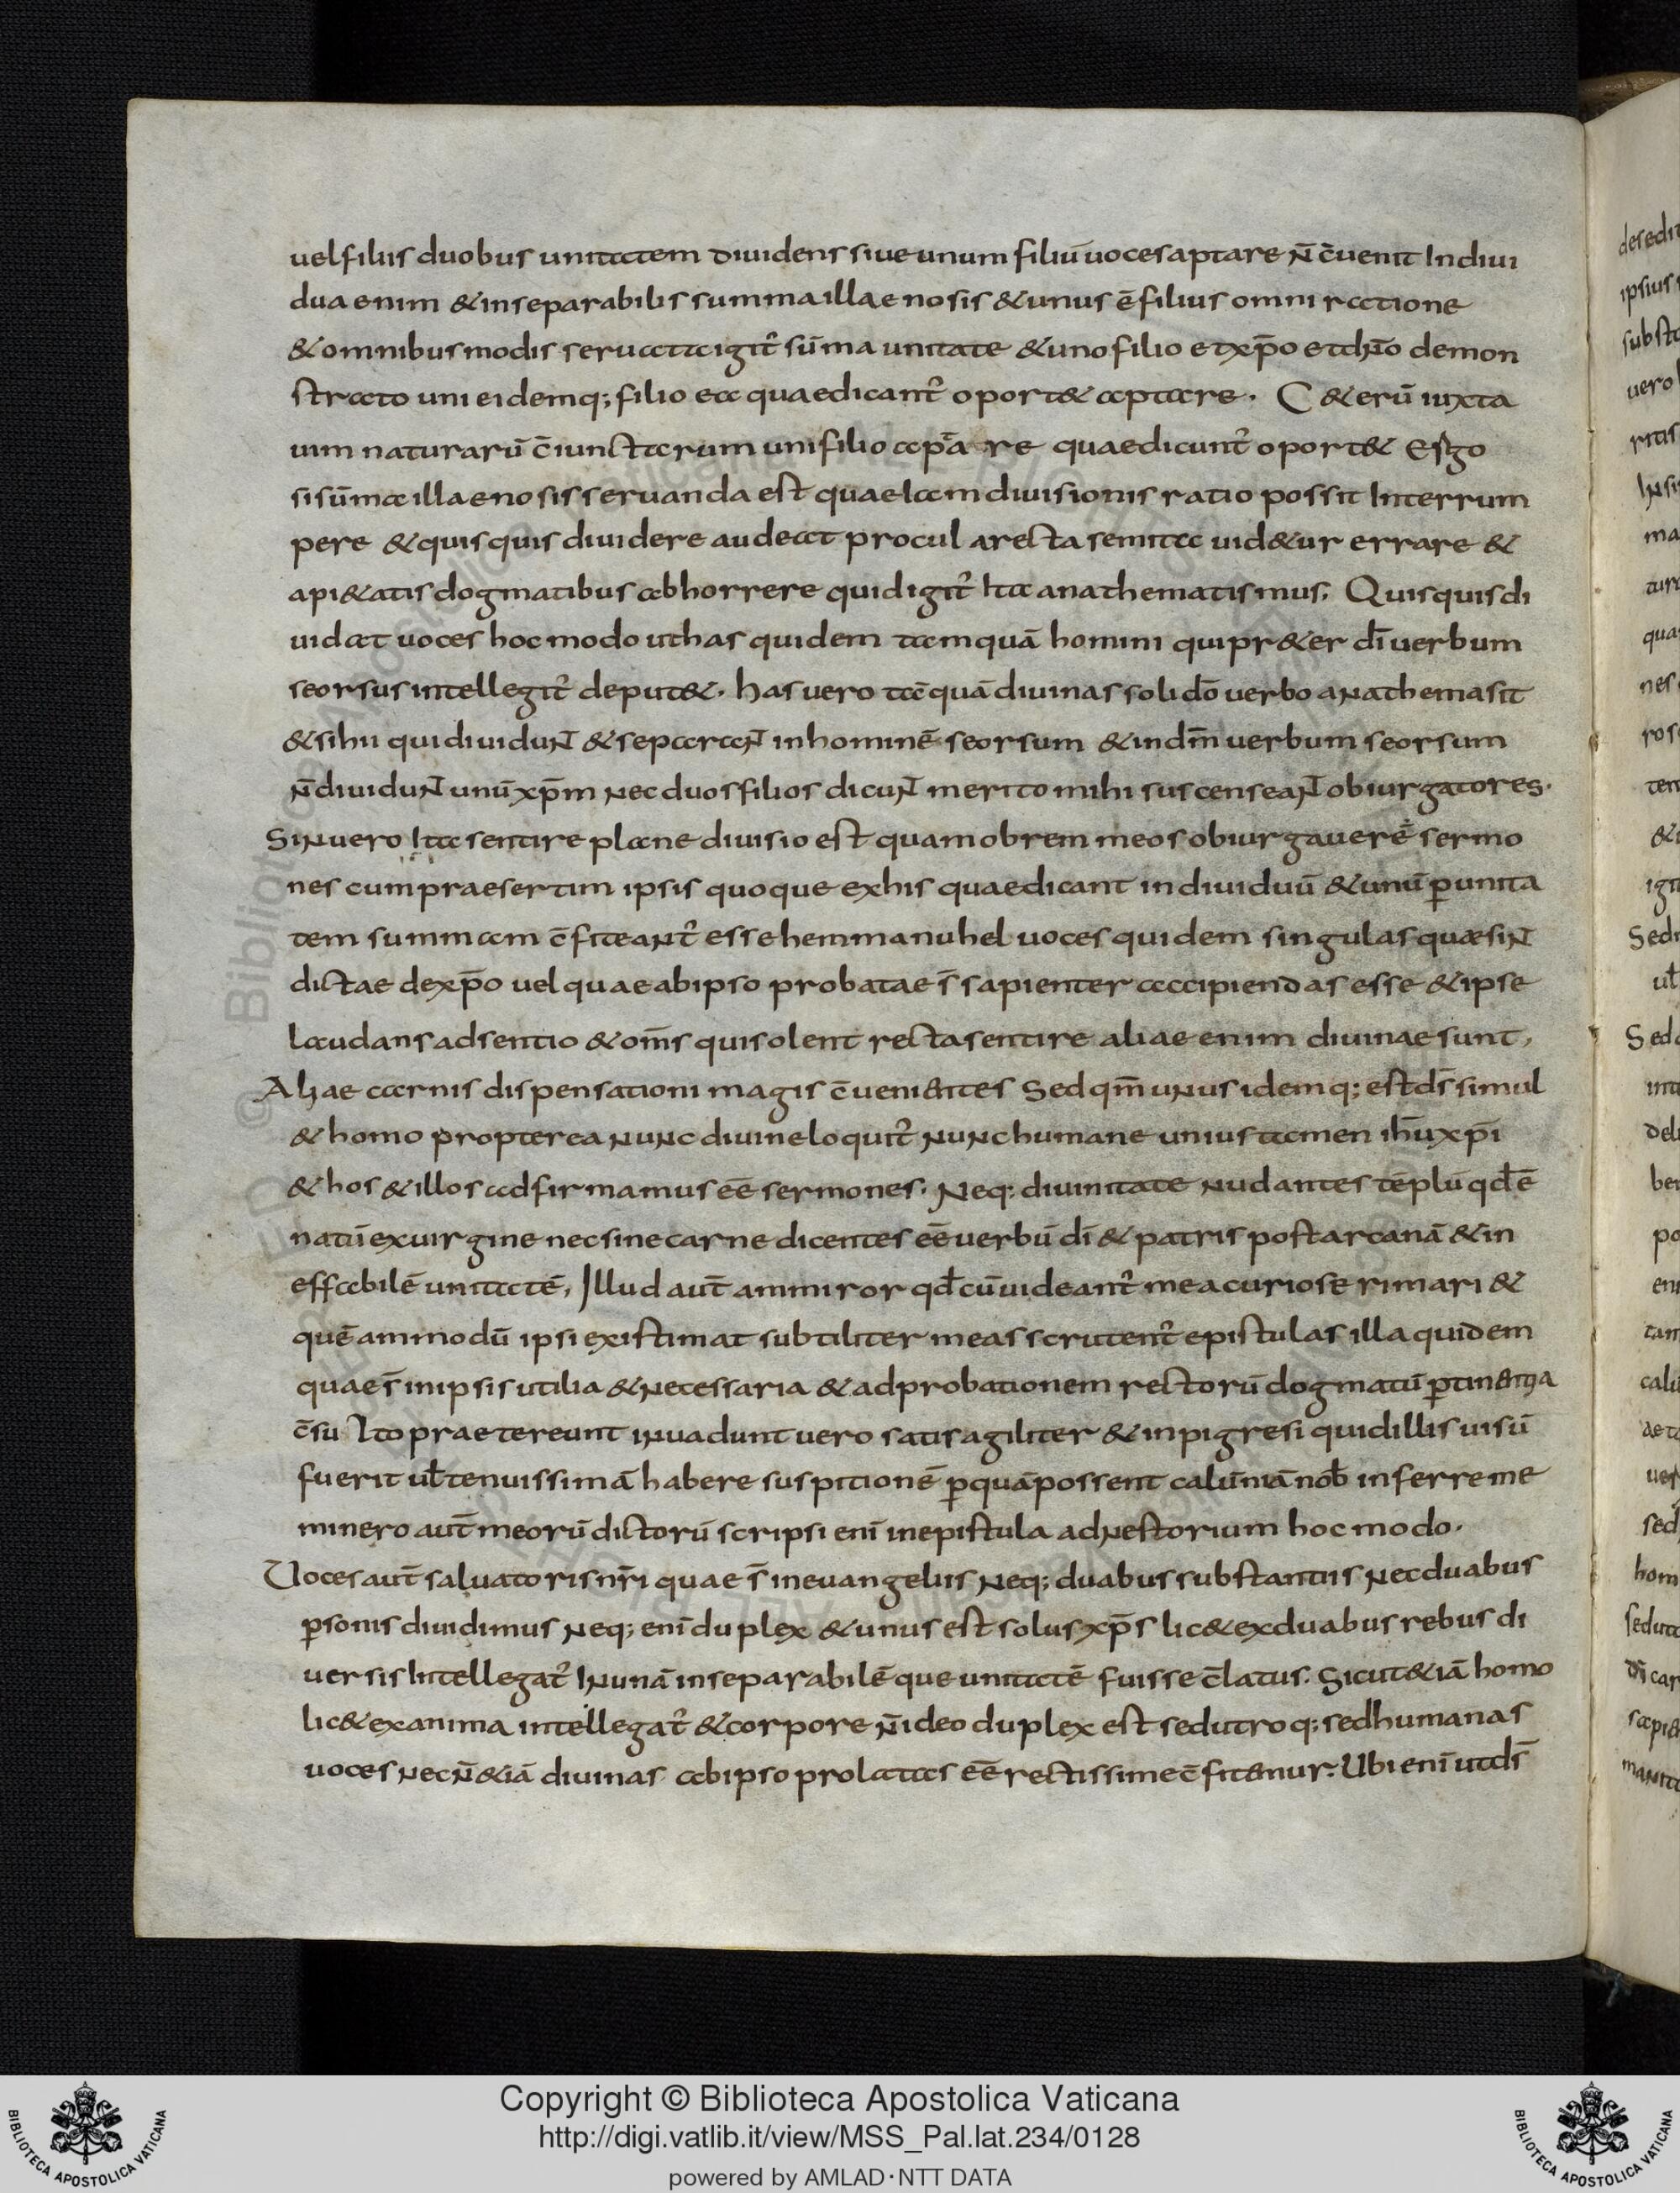 uel filiis duobus unitatem diuidens siue unum filiū uoces aptare n̄ c̄uenit Indiui
dua enim & inseparabilis summa illa enosis & unus ē filius omni ratione
& omnibus modis seruata igit̄ sūma unitate & uno filio et xp̄o et dn̄o demon
strato uni eidemq; filio ea quae dicant̄ oport& aptare. C&erū iuxta
uim naturarū c̄iunctarum uni filio aptare quae dicunt̄ oport& Ergo
si sūma illa enosis seruanda est quae lam diuisionis ratio possit Interrum
pere & quisquis diuidere audeat procul a recta semita uid&ur errare &
a pi&atis dogmatibus abhorrere quid igit̄ Ita anathematismus; Quisquis di
uidat uoces hoc modo ut has quidem tamquā homini qui pr&er dī uerbum
seorsus intellegit̄ deput&. has uero tāquā diuinas soli dō uerbo anathema sit
& si hii qui diuidunt & separant in hominē seorsum & in dm̄ uerbum seorsum
n̄ diuidunt unū xp̄m nec duos filios dicunt merito mihi suscenseant obiurgatores.
Sin uero Ita sentire plane diuisio est quam obrem meos obiurgauerē sermo
nes cum praesertim ipsis quoque ex his quae dicant indiuiduū & unū p̄ unita
tem summam c̄fiteant̄ esse hemmanuhel uoces quidem singulas quae sint
dictae de xp̄o uel quae ab ipso probatae s̄ sapienter accipiendas esse & ipse
laudans adsentio & om̄s qui solent recta sentire aliae enim diuinae sunt,
Aliae carnis dispensationi magis c̄uenientes Sed qm̄ unus idemq; est ds̄ simul
& homo propterea nunc diuine loquit̄ nunc humane unius tamen ih̄u xp̄i
& hos & illos adfirmamus eē sermones. Neq; diuinitate nudantes tēplū qd̄ ē
natū ex uirgine nec sine carne dicentes eē uerbū dī & patris post arcanā & in
effabilē unitatē, Illud aut̄ ammiror qd̄ cū uideant̄ mea curiose rimari &
quē ammodū ipsi existimat subtiliter meas scrutent̄ epistulas illa quidem
quae s̄ in ipsis utilia & necessaria & ad probationem rectorū dogmatū p̄tinentia
c̄su Ito praetereunt inuadunt uero satis agiliter & inpigre si quid illis uisū
fuerit ul̄ tenuissimā habere suspitionē p̄ quā possent calūniā nob̄ inferre me
minero aut̄ meorū dictorū scripsi enī in epistula ad nestorium hoc modo.
Uoces aut̄ saluatoris nr̄i quae s̄ in euangeliis Neq; duabus substantiis Nec duabus
p̄sonis diuidimus Neq; enī duplex & unus est solus xp̄s lic& ex duabus rebus di
uersis Intellegat̄ In unā inseparabilēque unitatē fuisse c̄latus. Sicut &iā homo
lic& ex anima intellegat̄ & corpore n̄ ideo duplex est sed utroq; sed humanas
uoces necn̄ &iā diuinas ab ipso prolatas eē rectissime c̄fitemur. Ubi enī ut ds̄
Copyright © Biblioteca Apostolica Vaticana
http://digi.vatlib.it/view/MSS_Pal.lat.234/0128
powered by AMLAD·NTT DATA
BIBLIOTECA APOSTOLICA VATICANA
BIBLIOTECA APOSTOLICA VATICANA